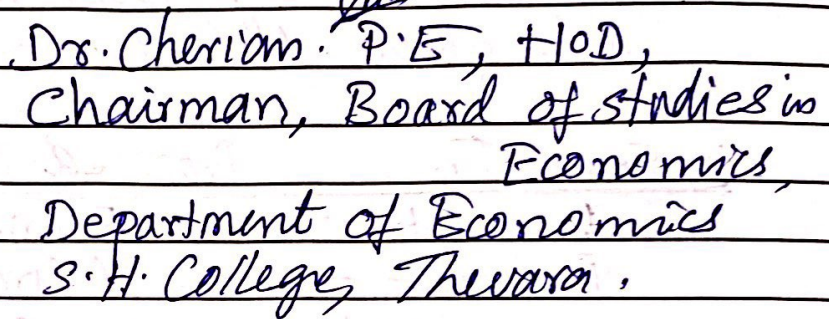 Dr. Cherian. P.E, HOD,
Chairman, Board of studies in
Economics,
Department of Economics
S.H. College, Thevara.